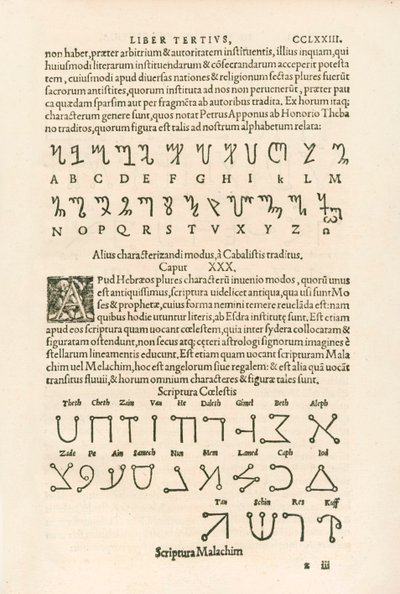 LIBER TERTIVS, CCLXXIII.
non habet, præter arbitrium & autoritatem instituentis, illius inquam, qui
huiusmodi literarum instituendarum & cōsecrandarum acceperit potesta
tem, cuiusmodi apud diuersas nationes & religionum sectas plures fuerūt
sacrorum antistites, quorum instituta ad nos non peruenerūt, præter pau
ca quædam sparsim aut per fragmēta ab autoribus tradita. Ex horum itaq;
characterum genere sunt, quos notat Petrus Apponus ab Honorio Theba
no traditos, quorum figura est talis ad nostrum alphabetum relata:
A B C D E F G H I k L M
N O P Q R S T V X Y Z Ω
Alius characterizandi modus, à Cabalistis traditus.
Caput XXX.
APud Hebræos plures characterū inuenio modos, quorū unus
est antiquissimus, scriptura uidelicet antiqua, qua usi sunt Mo
ses & prophetæ, cuius forma nemini temere reuelāda est: nam
quibus hodie utuntur literis, ab Esdra institutę sunt. Est etiam
apud eos scriptura quam uocant cœlestem, quia inter sydera collocatam &
figuratam ostendunt, non secus atq; cęteri astrologi signorum imagines è
stellarum lineamentis educunt. Est etiam quam uocant scripturam Mala
chim uel Melachim, hoc est angelorum siue regalem: & est alia quā uocāt
transitus fluuii, & horum omnium characteres & figuræ tales sunt.
Scriptura Cœlestis
Theth Cheth Zain Vau He Daleth Gimel Beth Aleph
Zade Pe Ain Samech Nun Mem Lamed Caph Iod
Tau Schin Res Kuff
Scriptura Malachim
z iii